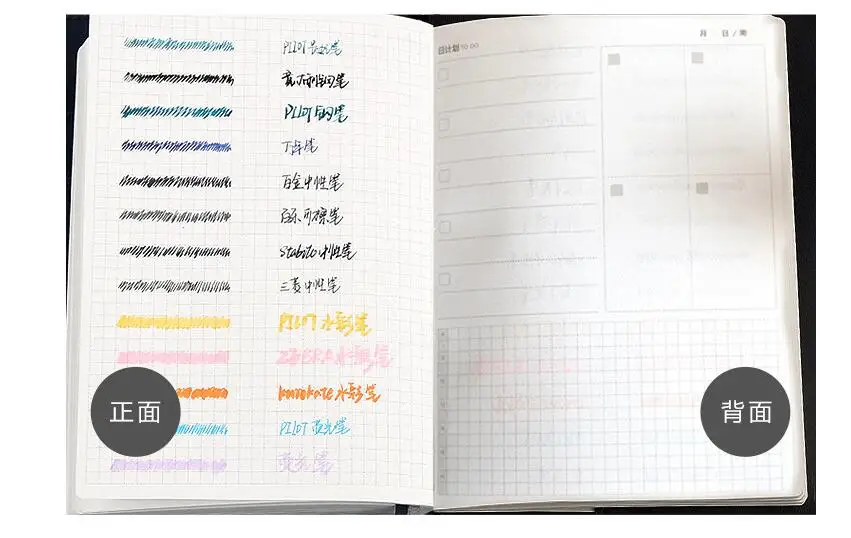 PILOT
PILOT 钢笔
百金中性笔
可擦笔
Stabilo 中性笔
三菱中性笔
PILOT 水彩笔
ZEBRA 水彩笔
Kuretake 水彩笔
PILOT 荧光笔
荧光笔
正面
月 日 / 周
日计划 TO DO
背面